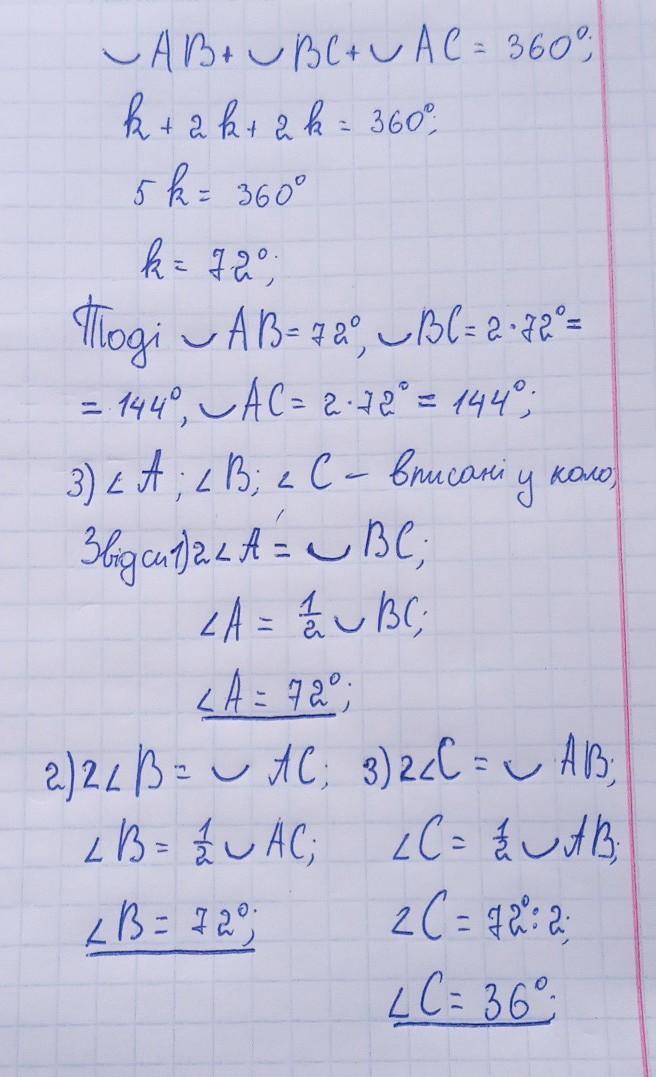 ◡AB+ ◡BC+ ◡AC = 360°;
k + 2k + 2k = 360°;
5k = 360°
k = 72°;
Тоді ◡AB = 72°, ◡BC = 2·72° =
= 144°, ◡AC = 2·72° = 144°;
3) ∠A; ∠B; ∠C – вписані у коло,
Звідси 1) 2∠A = ◡BC;
∠A = 1/2 ◡BC;
∠A = 72°;
2) 2∠B = ◡AC; 3) 2∠C = ◡AB;
∠B = 1/2 ◡AC; ∠C = 1/2 ◡AB;
∠B = 72°; ∠C = 72°:2;
∠C = 36°;